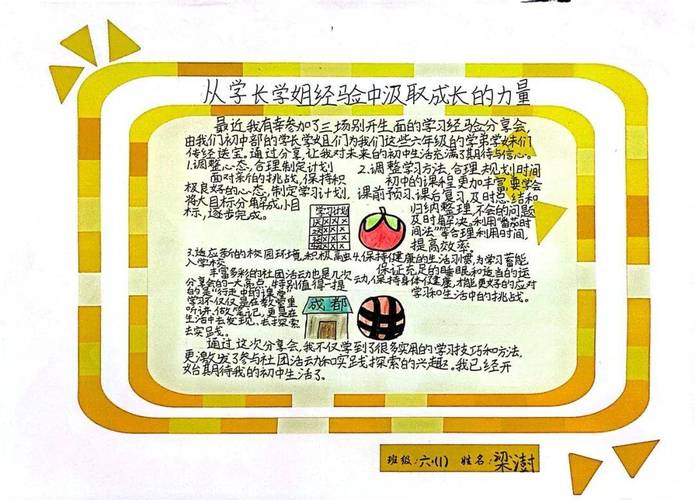 从学长学姐经验中汲取成长的力量
最近,我有幸参加了三场别开生面的学习经验分享会,
由我们初中部的学长学姐们为我们这些六年级的学弟学妹们
传经送宝。通过分享,让我对未来的初中生活充满了期待与信心。
1.调整心态,合理制定计划
面对新的挑战,保持积
极良好的心态,制定学习计划,
将大目标分解成小目
标,逐步完成。
2.调整学习方法,合理规划时间
初中的课程更加丰富,要学会
课前预习、课后复习,及时总结和
归纳整理,不会的问题
及时解决,利用“番茄时
间法”等合理利用时间,
提高效率。
学习计划
3.适应新的校园环境,积极融
入学校
丰富多彩的社团活动也是几次
分享会的一大亮点,特别值得一提
的是“行走中的课堂”
学习不仅仅是在教室里
听讲、做笔记,更是在
生活中去发现,去探索
去实践。
4.保持健康的生活习惯,为学习蓄能
保证充足的睡眠和适当的运
动,保持身体健康,才能更好的应对
学习和生活中的挑战。
成都
通过这次分享会,我不仅学到了很多实用的学习技巧和方法,
更激发了参与社团活动和实践探索的兴趣。我已经开
始期待我的初中生活了。
班级:六(1) 姓名:梁澍